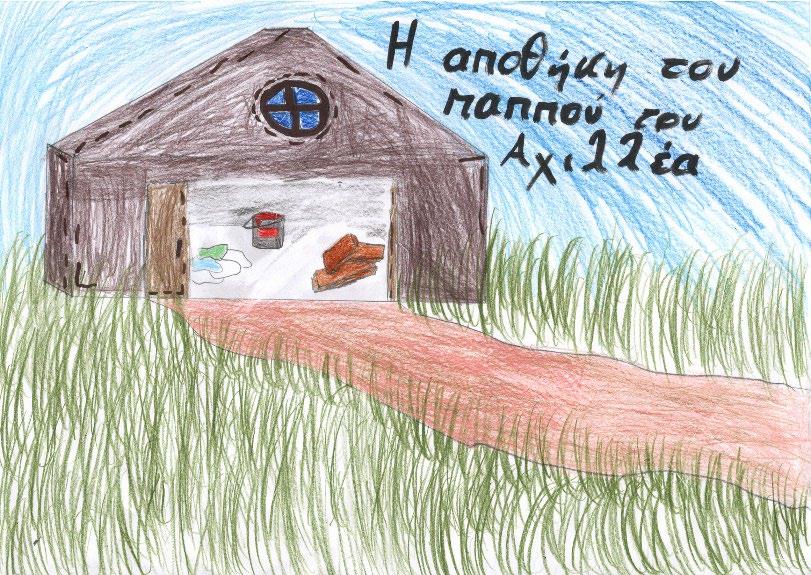 Η αποθήκη του
παππού του
Αχιλλέα